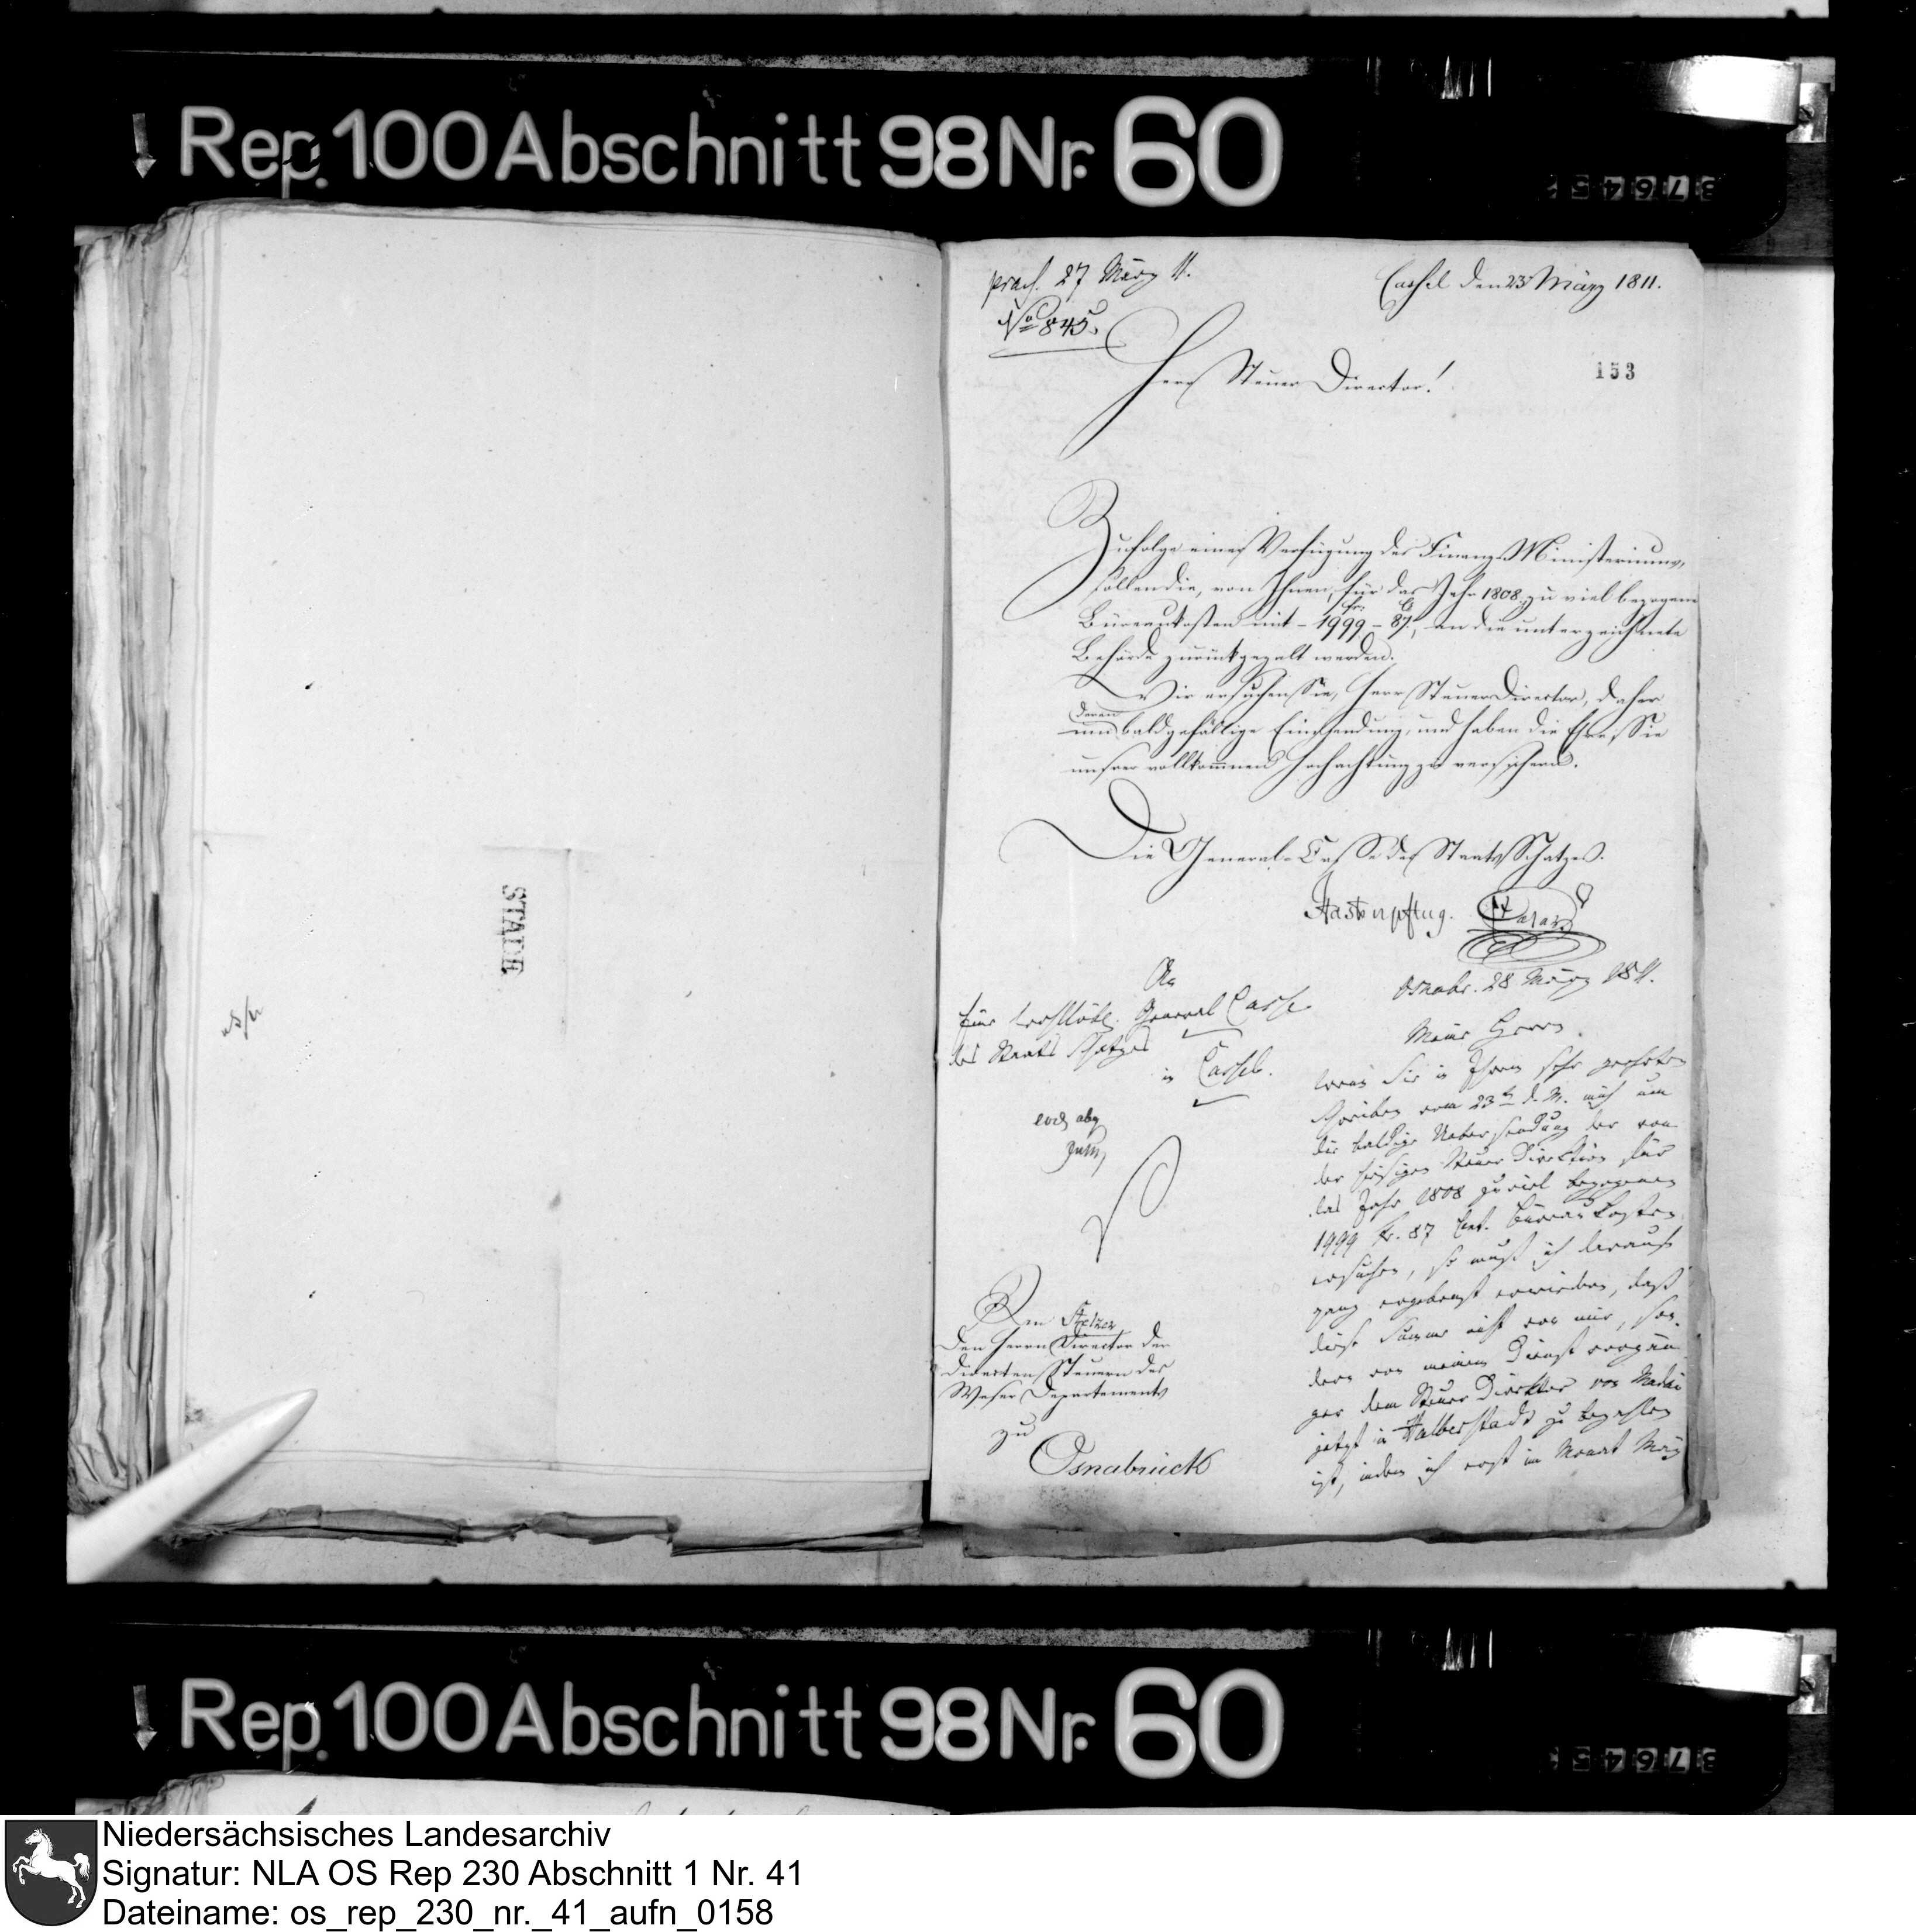 Rep. 100 Abschnitt 98 Nr. 60
praes. 27 März 11.
No 845.
Cassel den 23 März 1811.
153
Herr Steuer Director!
Zufolge einer Verfügung des Finanz-Ministeriums,
sollen die, von Ihnen, für das Jahr 1808 zu viel bezogene
Büreaukosten mit - 1999 fr. - 87 Cs, an die unterzeichnete
Behörde zurückgezalt werden.
Wir ersuchen Sie, Herr Steuer Director, daher
um deren baldgefällige Einsendung, und haben die Ehre Sie
unsrer vollkommnen Hochachtung zu versichern.
Die General-Casse des Staats Schatzes.
Hastenpflug.
An
des Staats Schatzes
in Cassel.
General Casse
STADE
Osnabr. 28 März 1811.
Meine Herren
wenn Sie in Ihrem sehr geehrten
Schreiben vom 23ten d. M. mich um
die baldige Uebersendung der von
der hiesigen Steuer Direktion für
das Jahr 1808 zuviel bezogenen
1999 Fr. 87 Cent. Büreau Kosten
ersuchen, so muß ich darauf
ganz ergebenst erwiedern, daß
diese Summe nicht von mir, son-
dern von meinem Dienstvorgän-
ger dem Steuer Direktor von
jetzt in Halberstadt zu bezahlen
ist, indem ich erst im Monat
An
Den Herrn Director der
directen Steuern des
Weser Departements
zu
Osnabrück
Rep. 100 Abschnitt 98 Nr. 60
Niedersächsisches Landesarchiv
Signatur: NLA OS Rep 230 Abschnitt 1 Nr. 41
Dateiname: os_rep_230_nr._41_aufn_0158